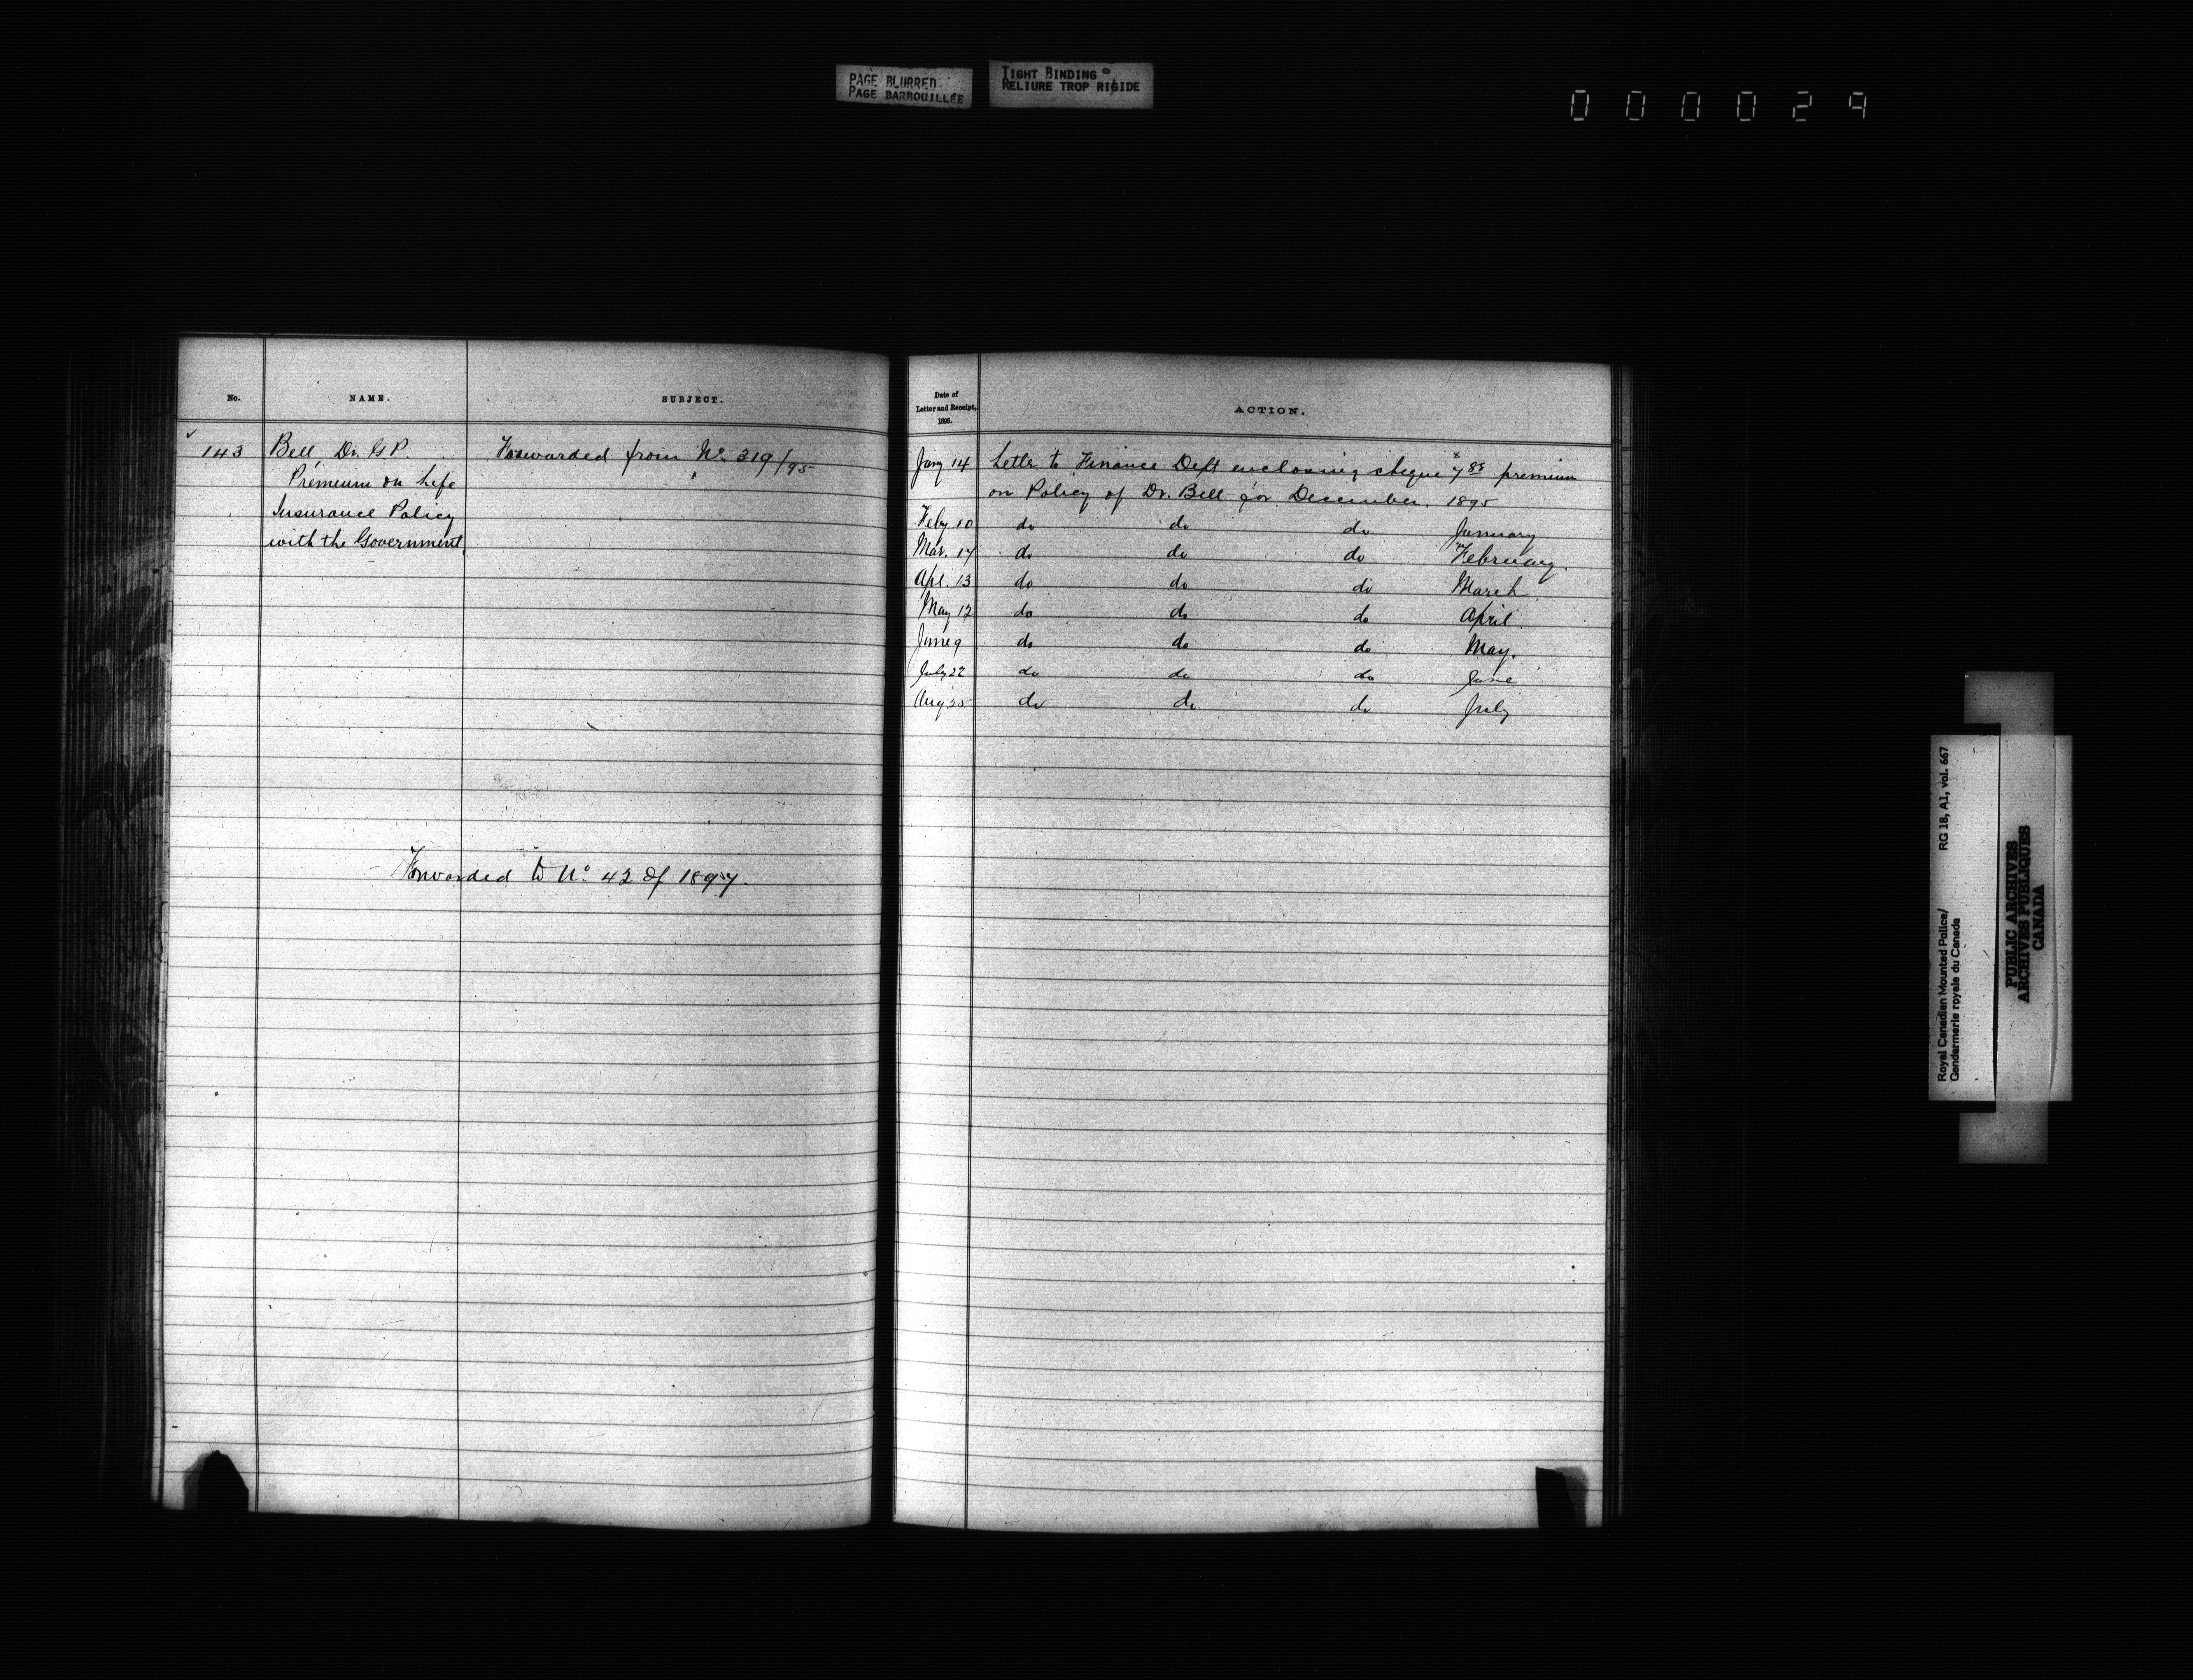 PAGE BLURRED
PAGE BARBOUILLÉE
TIGHT BINDING
RELIURE TROP RIGIDE
000029
No. NAME. SUBJECT.
143 Bell Dr. G.P. Forwarded from No. 319/95
Premium on Life
Insurance Policy
with the Government
Forwarded to No 42 of 1897.
Date of
Letter and Receipt,
1896.
ACTION.
Jany 14 Letter to Finance Dept enclosing cheque $7.88 premium
on Policy of Dr. Bell for December. 1895
Feby 10 do do do January
Mar. 17 do do do February.
Apl. 13 do do do March.
May 12 do do do April.
June 9 do do do May.
July 22 do do do June
Aug 25 do do do July
Royal Canadian Mounted Police/ RG 18, A1, vol. 667
Gendarmerie royale du Canada
PUBLIC ARCHIVES
ARCHIVES PUBLIQUES
CANADA